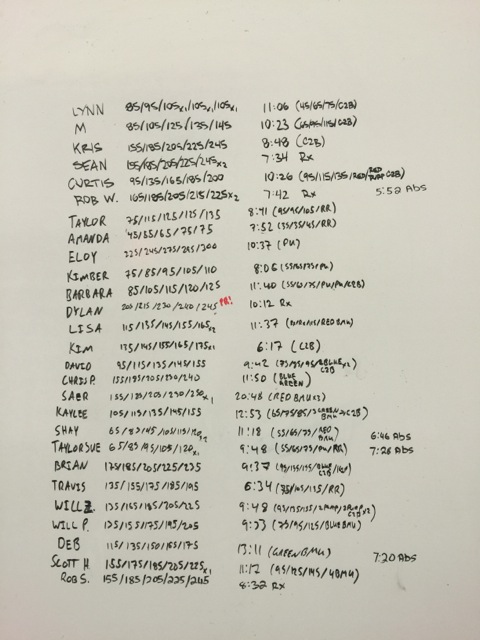 LYNN 85/95/105x1/105x1/105x1 11:06 (45/65/75/C2B)
M 85/105/125/135/145 10:23 (65/95/115/C2B)
KRIS 155/185/205/225/245 8:48 (C2B)
SEAN 155/185/205/225/245x2 7:34 Rx
CURTIS 95/135/165/185/200 10:26 (95/115/135/RED/ C2B)
ROB W. 165/185/205/215/225x2 7:42 Rx 5:52 ABS
TAYLOR 75/115/125/125/135 8:41 (95/95/105/RR)
AMANDA 45/55/65/75/75 7:52 (35/35/45/RR)
ELOY 225/245/275/295/300 10:37 (PU)
KIMBER 75/85/95/105/110 8:06 (55/65/75/PU)
BARBARA 85/105/115/120/125 11:40 (55/65/75/PU/PU/C2B)
DYLAN 205/215/230/240/245 PR! 10:12 Rx
LISA 115/135/145/155/165x2 11:37 (RED BMU)
KIM 135/145/155/165/175x1 6:17 (C2B)
DAVID 95/115/135/145/155 9:42 (75/75/95/BLUE x2 C2B)
CHRIS P. 155/185/205/230/240 11:50 (BLUE GREEN)
SABR 155/185/205/230/250x1 20:48 (RED BMU x3)
KAYLEE 105/115/135/145/155 12:53 (65/75/85/2 GREEN BMU → C2B)
SHAY 65/85/45/105/115/120x2 11:18 (55/65/75/RED BMU) 6:46 ABS
TAYLORSUE 65/85/95/105/120x1 9:48 (55/65/75/PU/RR) 7:28 ABS
BRIAN 175/185/205/225/235 9:37
TRAVIS 135/155/175/185/195 6:34 (75/105/115/RR)
WILL Z. 135/165/185/205/225 9:48 (95/135/155
WILL P. 135/155/175/195/205 9:33 (75/95/125/BLUE BMU)
DEB 115/135/150/165/175 13:11 (GREEN BMU)
SCOTT H. 155/175/185/205/225x1 11:12 (95/125/145/4BMU) 7:20 ABS
ROB S. 155/185/205/225/245 8:32 Rx